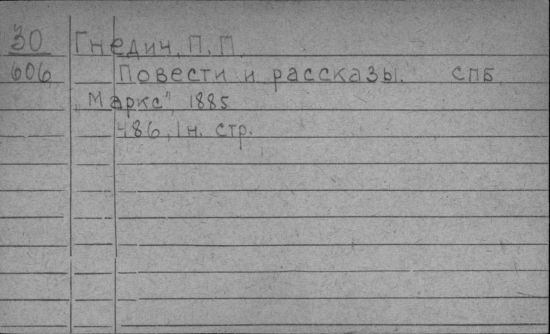 30 Гнедич, П. П.
606 Повести и рассказы. СПБ
„Маркс", 1885
486, 1 н. стр.